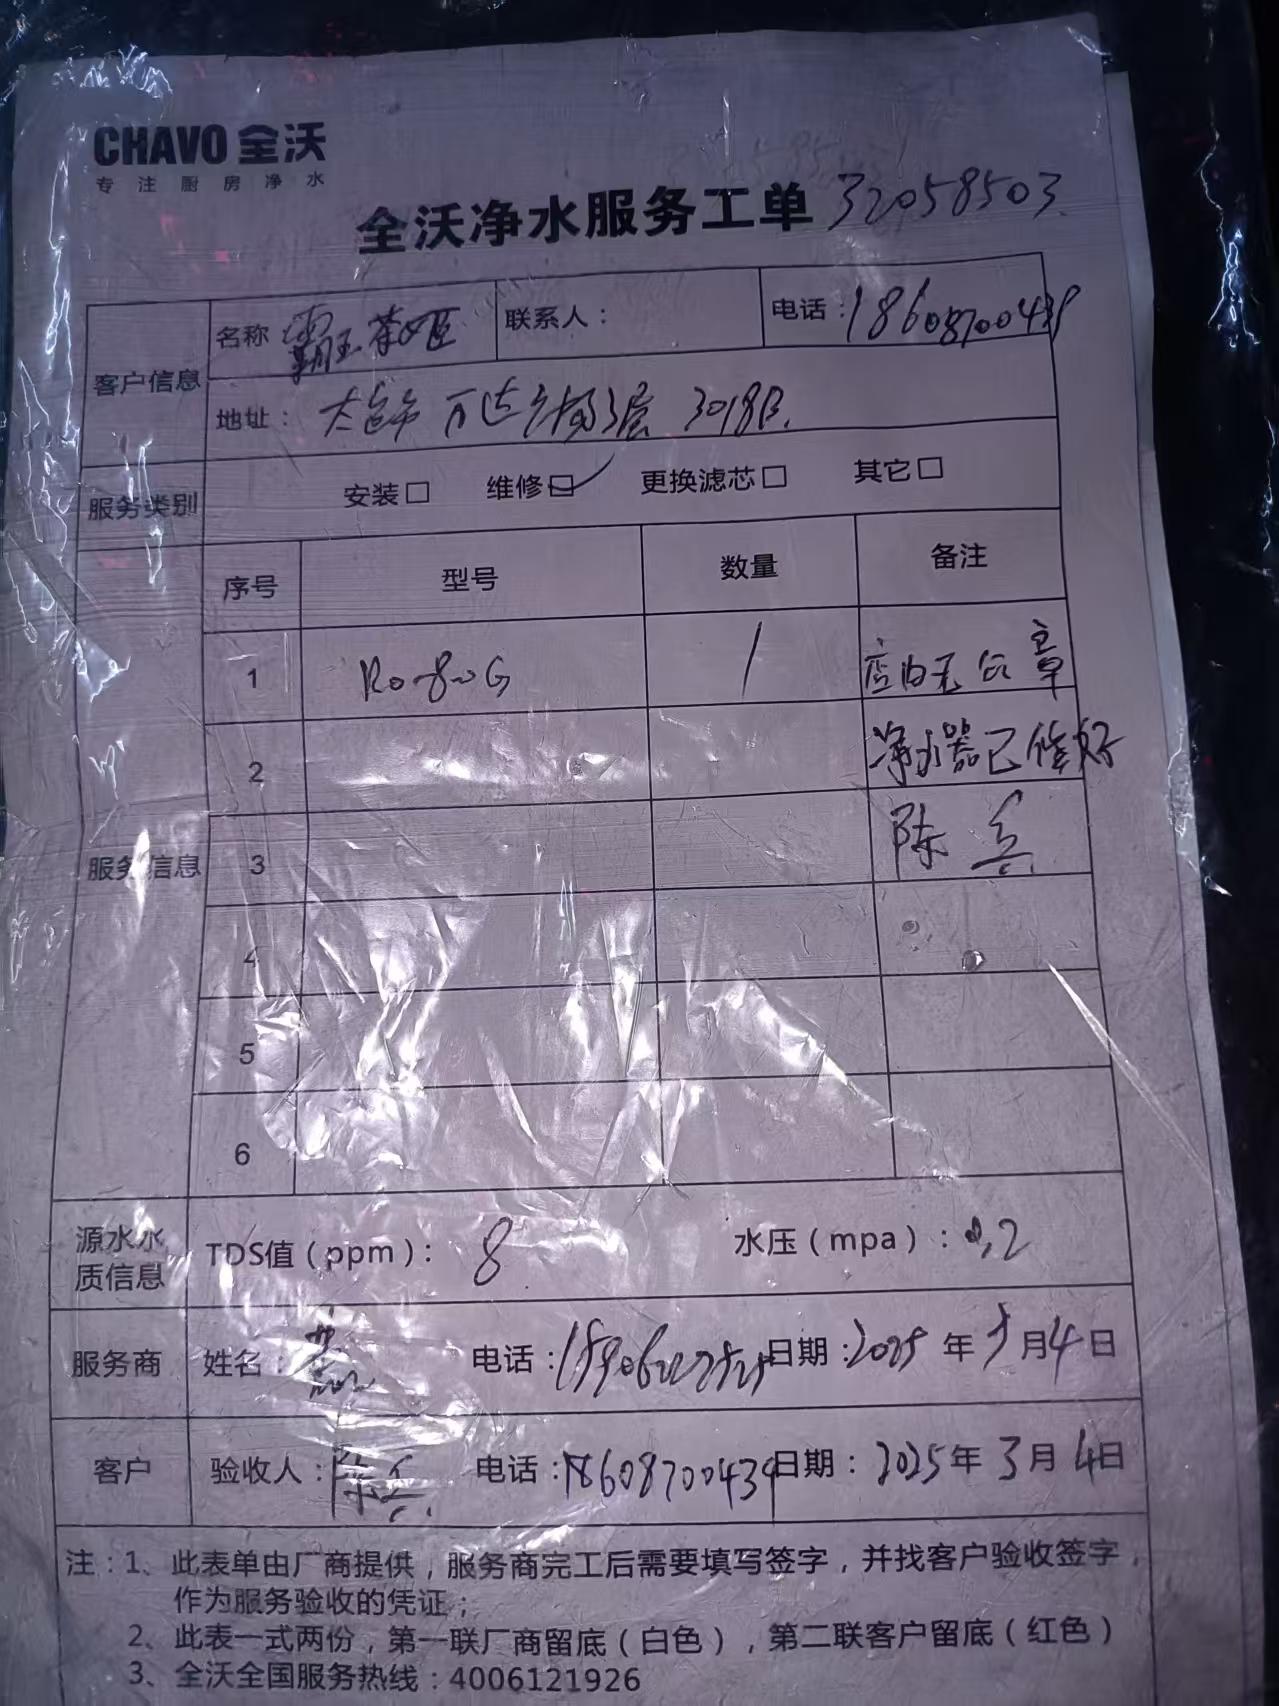 CHAVO 全沃
专注厨房净水
全沃净水服务工单 32058503
客户信息
名称 霸王茶姬 联系人： 电话：18608700439
地址： 万达广场3层 3018B
服务类别 安装□ 维修□ 更换滤芯□ 其它□
服务信息
序号 型号 数量 备注
1 Ro-800G 1 店内无公章
2 净水器已修好
3 陈兵
4
5
6
源水水质信息 TDS值（ppm）： 8 水压（mpa）：0.2
服务商 姓名： 电话： 日期：2025 年 3 月 4 日
客户 验收人：陈兵 电话：18608700439 日期：2025 年 3 月 4 日
注：1、此表单由厂商提供，服务商完工后需要填写签字，并找客户验收签字，
作为服务验收的凭证；
2、此表一式两份，第一联厂商留底（白色），第二联客户留底（红色）
3、全沃全国服务热线：4006121926